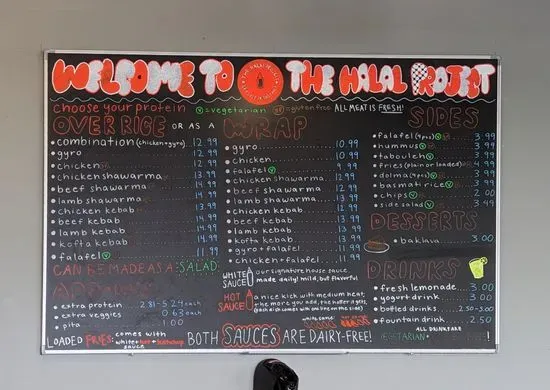 WELCOME TO THE HALAL PROJECT
choose your protein V=vegetarian GF=gluten free ALL MEAT IS FRESH!
OVER RICE OR AS A WRAP
combination (chicken+gyro) 12.99
gyro 12.99
chicken 12.99
chicken shawarma 13.99
beef shawarma 14.99
lamb shawarma 14.99
chicken kebab 13.99
beef kebab 14.99
lamb kebab 14.99
kofta kebab 14.99
falafel V 11.99
CAN BE MADE AS A SALAD
extra protein 2.81-5.24 each
extra veggies 0.63 each
pita 1.00
LOADED FRIES: comes with
white + hot + ketchup
sauce
gyro 10.99
chicken 10.99
falafel V
chicken shawarma
beef shawarma
lamb shawarma
chicken kebab
beef kebab
lamb kebab
kofta kebab
gyro + falafel
chicken + falafel 11.99
WHITE SAUCE our signature house sauce,
made daily! mild, but flavorful
HOT SAUCE a nice kick with medium heat,
the more you add, the hotter it gets,
BOTH SAUCES ARE DAIRY-FREE!
SIDES
falafel (4pcs) V 3.99
hummus V 3.99
tabouleh V
fries (plain or loaded)
dolma (4pcs) V
basmati rice V 3.99
chips V 2.00
side salad 3.49
DESSERTS
baklava 3.00
DRINKS
fresh lemonade 3.00
yogurt drink 3.00
bottled drinks 2.50-3.00
fountain drink 2.50
ALL DRINKS ARE